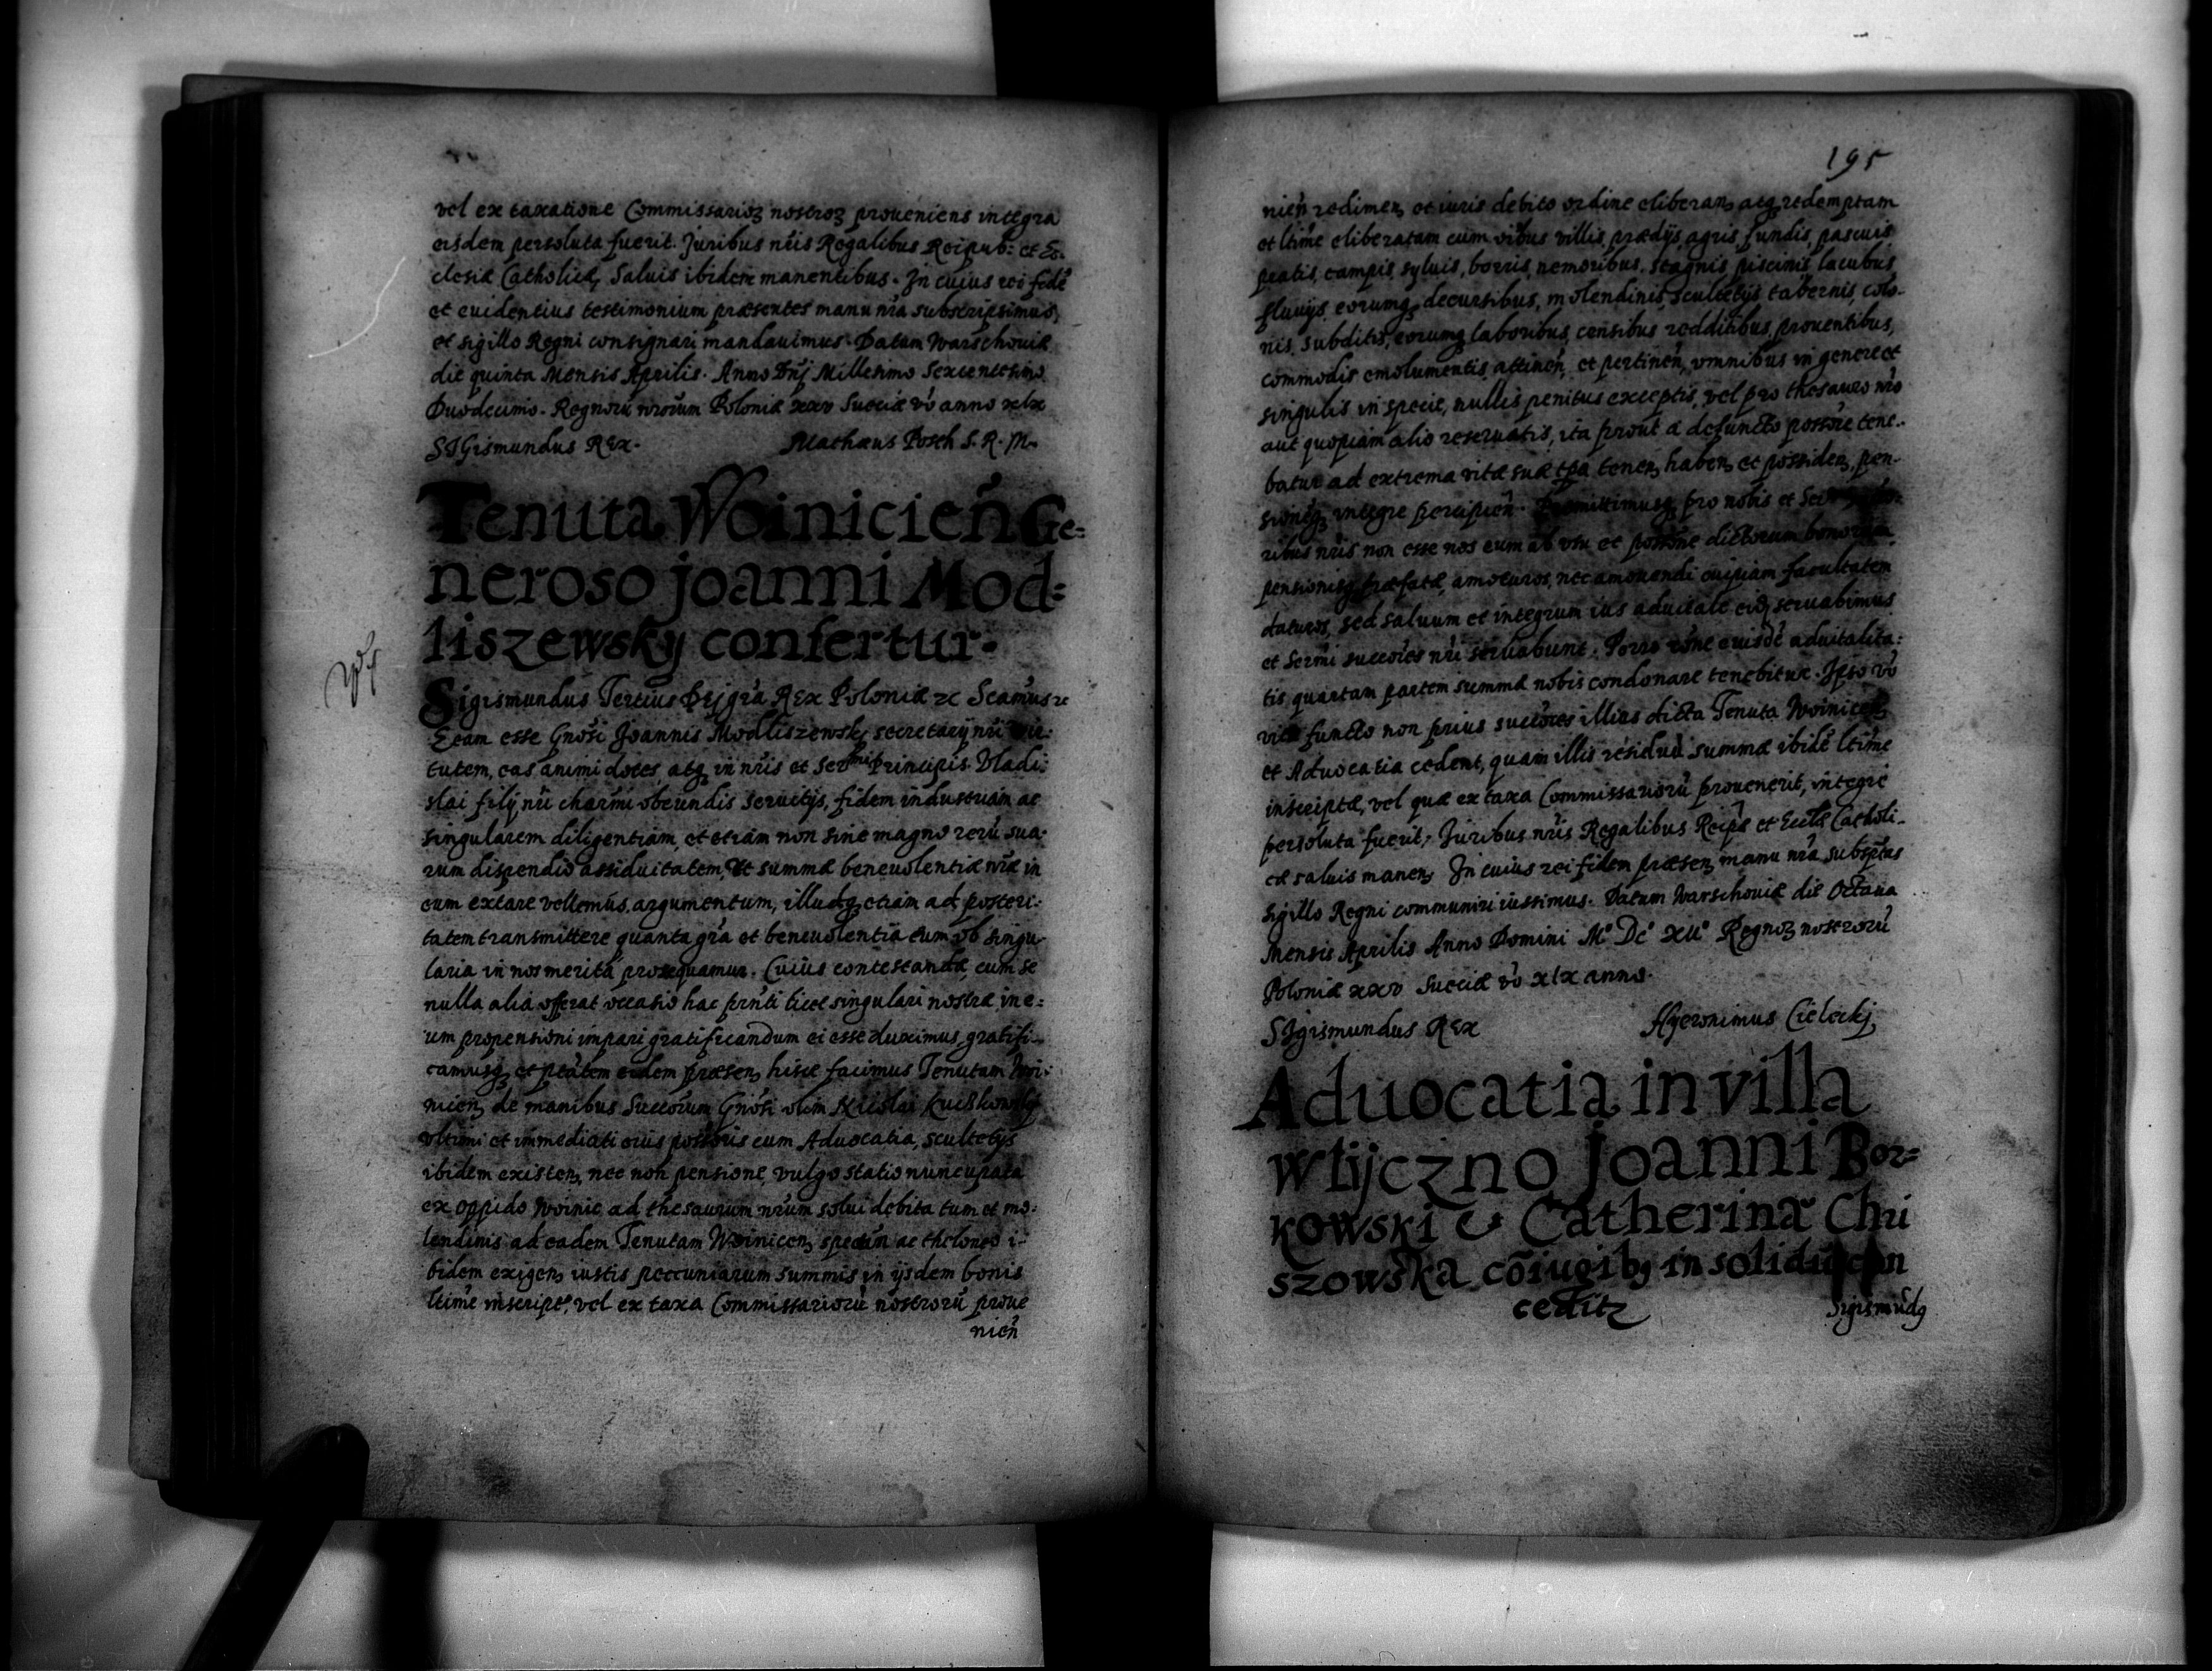 vel ex taxatione Commissarioʒ nostroʒ proueniens integra
eisdem persoluta fuerit. Juribus nr̃is Regalibus Reipub: et Ec-
clesiæ Catholicæ, saluis ibidem manentibus. In cuius rei fidẽ
et euidentius testimonium præsentes manu nr̃a subscripsimus,
et sigillo Regni consignari mandauimus. Datum Warschouiæ
die quinta Mensis Aprilis. Anno Dñj Millesimo Sexcentesimo
Duodecimo. Regnorũ nr̃orum Poloniæ xxv Sueciæ vo anno xlx
SIGismundus REx. Mathæus Posch S. R. M.
Tenuta Woinicieñ Ge=
neroso Joanni Mod=
liszewsky confertur.
Sigismundus Tertius Dej gr̃a REx Poloniæ ⁊c
Eam esse Gnõsi Joannis Modliszewskj secretarij nr̃i vir:
tutem, eas animi dotes, atqʒ in nr̃is et Serm̃i Principis Vladi:
slai filij nr̃i charm̃i obeundis seruitijs, fidem industriam ac
singularem diligentiam, et etiam non sine magno rerũ sua:
rum dispendio assiduitatem, Vt summæ beneuolentiæ nr̃æ in
eum extare vellemus argumentum, illudqʒ etiam ad posteri:
tatem transmittere quanta gr̃a et beneuolentia eum ob singu
laria in nos merita prosequamur. Cuius contestandæ, cum se
nulla alia offerat occasio hac pr̃nti licet singulari nostræ in e:
um propensioni impari gratificandum ei esse duximus, gratifi-
camusqʒ et ptãtem eidem præsenʒ hisce facimus Tenutam Woi:
nicenʒ de manibus Succorum Gnõsi olim Nicolai
vltimi et immediati eius possoris cum Aduocatia, scultetijs
ibidem existenʒ nec non pensione, vulgo statio nuncupata
ex oppido Woinic ad thesaurum nr̃um solui debita tum et mo:
lendinis ad eadem Tenutam Woinicenʒ spectañ ac theloneo i-
bidem exigenʒ iustis peccuniarum summis in ijsdem bonis
ltime inscript, vel ex taxa Commissariorũ nostrorũ proue
nieñ
195
nieñ redimenʒ et iuris debito ordine eliberanʒ atqʒ redemptam
et ltime eliberatam cum vibus villis, prædijs, agris, fundis, pascuis
pratis, campis, syluis, borris, nemoribus, stagnis, piscinis, lacubus
fluuijs, eorumqʒ decursibus, molendinis, scultetijs, tabernis, colo-
nis, subditis, eorumqʒ laboribus, censibus, redditibus, prouentibus,
commodis emolumentis attineñ, et pertineñ, vmnibus in genere et
singulis in specie, nullis penitus exceptis, vel pro thesauro nr̃o
aut quopiam alio reseruatis, ita prout a defuncto possore tene-
batur ad extrema vitæ suæ tp̃a tenenʒ habenʒ et possidenʒ, pen-
sionesqʒ integre percipieñ. Promittimusqʒ pro nobis et
ribus nr̃is non esse nos eum ab vsu et possone dictorum bonorum
pensionisqʒ præfatæ, amoturos, nec amouendi cuipiam facultatem
daturos, sed saluum et integrum ius aduitale eidʒ seruabimus
et Serm̃i succores nr̃i seruabunt. Porro rõne eiusdẽ aduitalita:
tis quartam partem summæ nobis condonare tenebitur. Ipso vo
vita functo non prius succores illius dicta Tenuta Woinicenʒ
et Aduocatia cedent, quam illis residua summa ibidẽ ltime
inscripta, vel quæ ex taxa Commissariorũ prouenerit, integre
persoluta fuerit, Juribus nr̃is Regalibus Reipẽ et Eccle Catholi-
cæ saluis manenʒ In cuius rei fidem præsenʒ manu nr̃a subsptas
sigillo Regni communiri iussimus. Datum Warschouiæ die Octaua
Mensis Aprilis Anno Domini Mo Dco XIIo Regnoʒ nostrorũ
Poloniæ xxv Sueciæ vo xlx anno.
SIgismundus REx Hyeronimus Cieleckj
Aduocatia in villa
wlijczno Joanni Bor=
kowski & Catherinæ Chu
szowska cõiugibʒ in solidũ con
ceditʒ
Sigismũdʒ